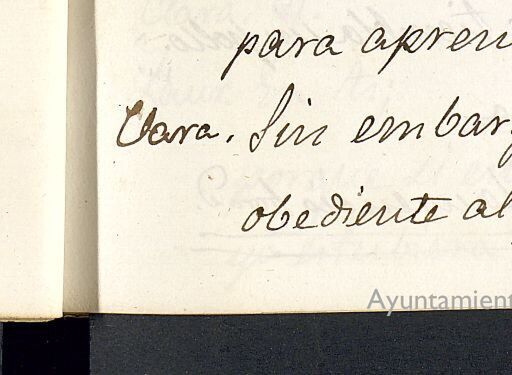 para apren
Clara. Sin embar
obediente al
Ayuntamient